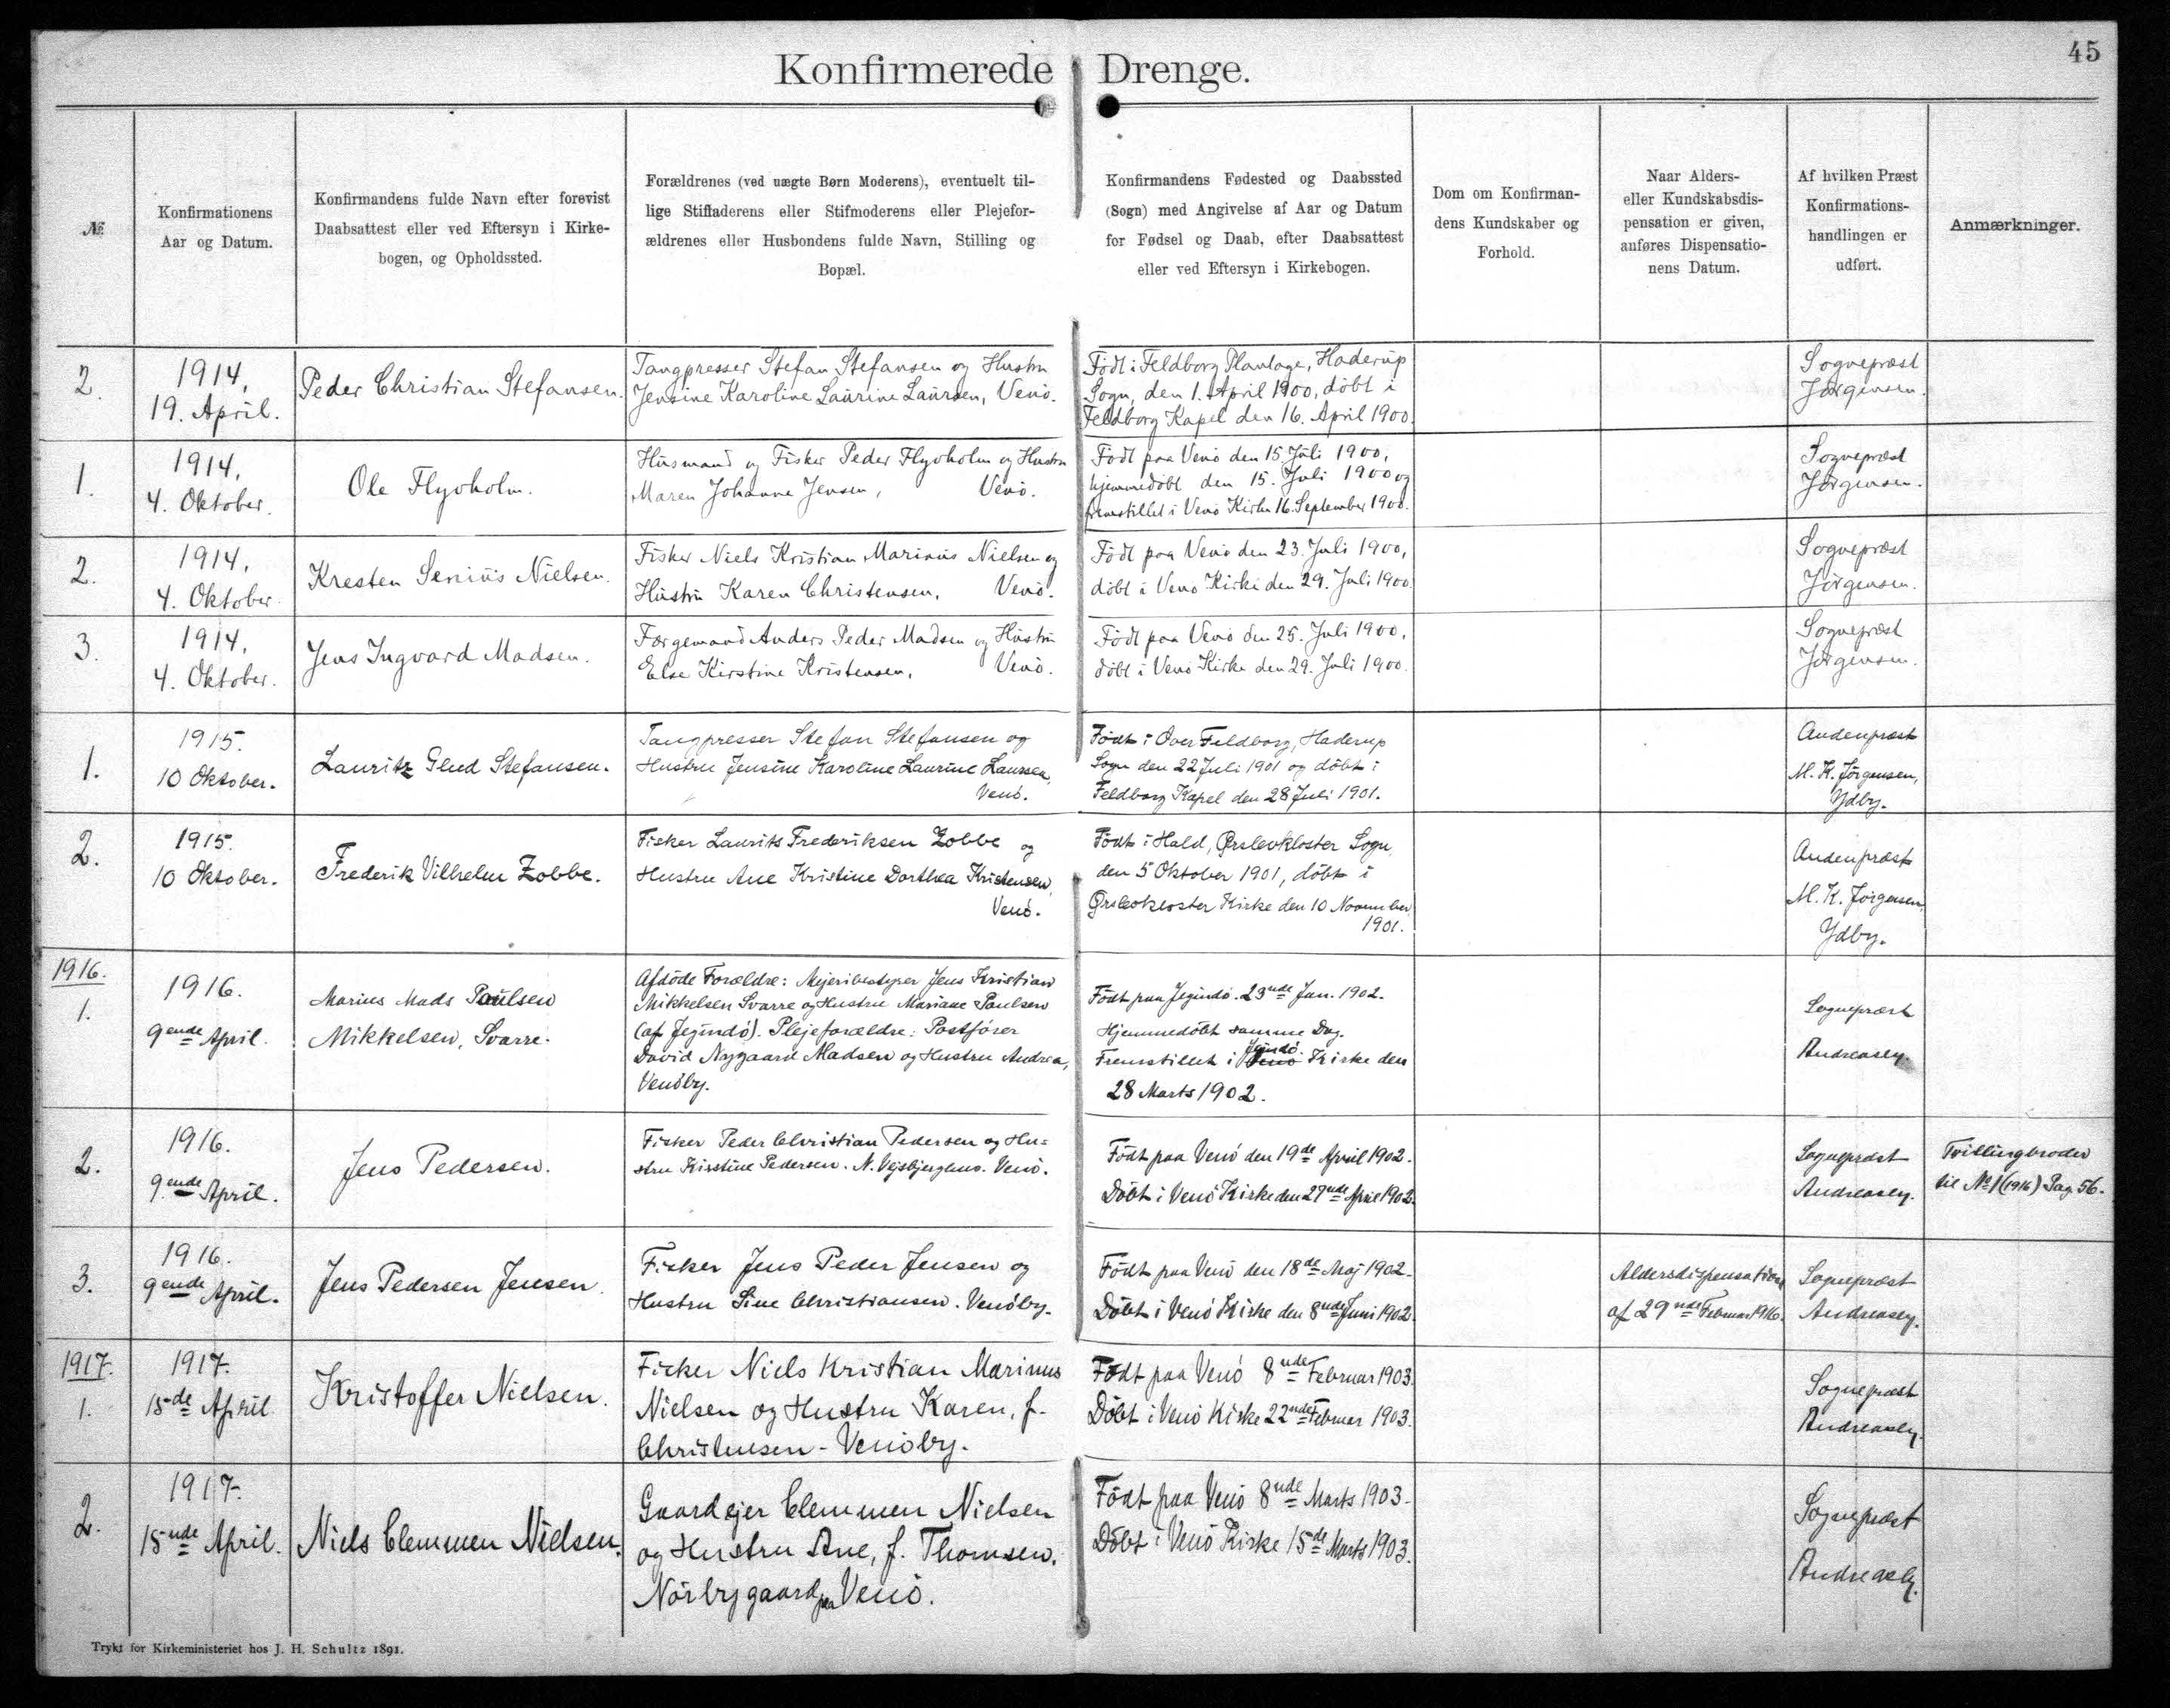 45
Konfirmerede Drenge.
№
Konfirmationens
Aar og Datum.
Konfirmandens fulde Navn efter forevist
Daabsattest eller ved Eftersyn i Kirke-
bogen, og Opholdssted.
Forældrenes (ved uægte Børn Moderens), eventuelt til-
lige Stiffaderens eller Stifmoderens eller Plejefor-
ældrenes eller Husbondens fulde Navn, Stilling og
Bopæl.
Konfirmandens Fødested og Daabssted
(Sogn) med Angivelse af Aar og Datum
for Fødsel og Daab, efter Daabsattest
eller ved Eftersyn i Kirkebogen.
Dom om Konfirman-
dens Kundskaber og
Forhold.
Naar Alders-
eller Kundskabsdis-
pensation er given,
anføres Dispensatio-
nens Datum.
Af hvilken Præst
Konfirmations-
handlingen er
udført.
Anmærkninger.
2.
1914.
19. April.
Peder Christian Stefansen.
Tangpresser Stefan Stefansen og Hustru
Jensine Karoline Laurine Laursen, Venö.
Födt i Feldborg Plantage, Haderup
Sogn, den 1. April 1900, döbt i
Feldborg Kapel den 16. April 1900.
Sognepræst
Jörgensen.
1.
1914.
4. Oktober.
Ole Flyvholm.
Husmand og Fisker Peder Flyvholm og Hustru
Maren Johanne Jensen, Venö.
Födt paa Venö den 15. Juli 1900,
hjemmedöbt den 15. Juli 1900 og
fremstillet i Venö Kirke 16. September 1900.
Sognepræst
Jörgensen.
2.
1914.
4. Oktober.
Kresten Senius Nielsen.
Fisker Niels Kristian Marinus Nielsen og
Hustru Karen Christensen, Venö.
Födt paa Venö den 23. Juli 1900,
döbt i Venö Kirke den 29. Juli 1900.
Sognepræst
Jörgensen.
3.
1914.
4. Oktober.
Jens Ingvard Madsen.
Færgemand Anders Peder Madsen og Hustru
Else Kirstine Kristensen, Venö.
Födt paa Venö den 25. Juli 1900,
döbt i Venö Kirke den 29. Juli 1900.
Sognepræst
Jörgensen.
1.
1915.
10 Oktober.
Lauritz Glud Stefansen.
Tangpresser Stefan Stefansen og
Hustru Jensine Karoline Laurine Laursen,
Venö.
Födt i Over Feldborg, Haderup
Sogn den 22 Juli 1901 og döbt i
Feldborg Kapel den 28 Juli 1901.
Andenpræst
M. K. Jörgensen,
Ydby.
2.
1915.
10 Oktober.
Frederik Vilhelm Zobbe.
Fisker Laurits Frederiksen Zobbe og
Hustru Ane Kristine Dorthea Kristensen,
Venö.
Födt i Hald, Ørslevkloster Sogn,
den 5 Oktober 1901, döbt i
Ørslevkloster Kirke den 10 November
1901.
Andenpræst
M. K. Jörgensen,
Ydby.
1916.
1.
1916.
9ende April.
Marius Mads Paulsen
Mikkelsen, Svarre.
Afdöde Forældre: Mejeribestyrer Jens Kristian
Mikkelsen Svarre og Hustru Mariane Paulsen
(af Jegindö). Plejeforældre: Postförer
David Nygaard Madsen og Hustru Andrea,
Venöby.
Födt paa Jegindö. 23nde Jan. 1902.
Hjemmedöbt samme Dag.
Jegindö.
Fremstillet i Venö Kirke den
28 Marts 1902.
Sognepræst
Andreasen.
2.
1916.
9.ende April.
Jens Pedersen.
Fisker Peder Christian Pedersen og Hu=
stru Kirstine Pedersen. N. Vejsbjerghus. Venö.
Födt paa Venö den 19de April 1902.
Döbt i Venö Kirke den 27nde April 1902.
Sognepræst
Andreasen.
Tvillingbroder
til № 1 (1916) Pag. 56.
3.
1916.
9ende April.
Jens Pedersen Jensen.
Fisker Jens Peder Jensen og
Hustru Sine Christiansen. Venöby.
Födt paa Venö den 18de Maj 1902.
Döbt i Venö Kirke den 8nde Juni 1902.
Aldersdispensation
af 29nde Februar 1916.
Sognepræst
Andreasen.
1917.
1.
1917.
15de April.
Kristoffer Nielsen.
Fisker Niels Kristian Marinus
Nielsen og Hustru Karen, f.
Christensen - Venöby.
Födt paa Venö 8nde Februar 1903.
Döbt i Venö Kirke 22nde Februar 1903.
Sognepræst
Andreasen.
2.
1917.
15nde April.
Niels Clemmen Nielsen.
Gaardejer Clemmen Nielsen
og Hustru Ane, f. Thomsen.
Nörbygaard paa Venö.
Födt paa Venö 8nde Marts 1903.
Döbt i Venö Kirke 15de Marts 1903.
Sognepræst
Andreasen.
Trykt for Kirkeministeriet hos J. H. Schultz 1891.